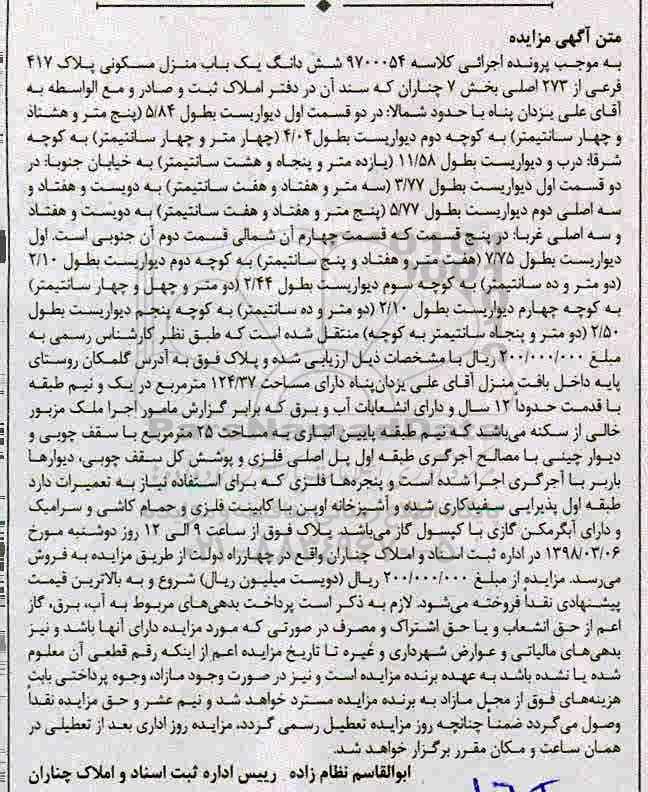 متن آگهی مزایده
به موجب پرونده اجرائی کلاسه ۹۷۰۰۰۵۴ شش دانگ یک باب منزل مسکونی پلاک ۴۱۷
فرعی از ۲۷۳ اصلی بخش ۷ چناران که سند آن در دفتر املاک ثبت و صادر و مع الواسطه به
آقای علی یزدان پناه با حدود شمالا: در دو قسمت اول دیواریست بطول ۵/۸۴ (پنج متر و هشتاد
و چهار سانتیمتر) به کوچه دوم دیواریست بطول ۴/۰۴ (چهار متر و چهار سانتیمتر) به کوچه
شرقا: درب و دیواریست بطول ۱۱/۵۸ (یازده متر و پنجاه و هشت سانتیمتر) به خیابان جنوبا: در
دو قسمت اول دیواریست بطول ۳/۷۷ (سه متر و هفتاد و هفت سانتیمتر) به دویست و هفتاد و
سه اصلی دوم دیواریست بطول ۵/۷۷ (پنج متر و هفتاد و هفت سانتیمتر) به دویست و هفتاد
و سه اصلی غربا: در پنج قسمت که قسمت چهارم آن شمالی قسمت دوم آن جنوبی است. اول
دیواریست بطول ۷/۷۵ (هفت متر و هفتاد و پنج سانتیمتر) به کوچه دوم دیواریست بطول ۲/۱۰
(دو متر و ده سانتیمتر) به کوچه سوم دیواریست بطول ۲/۴۴ (دو متر و چهل و چهار سانتیمتر)
به کوچه چهارم دیواریست بطول ۲/۱۰ (دو متر و ده سانتیمتر) به کوچه پنجم دیواریست بطول
۲/۵۰ (دو متر و پنجاه سانتیمتر به کوچه) منتقل شده است که طبق نظر کارشناس رسمی به
مبلغ ۲۰۰/۰۰۰/۰۰۰ ریال با مشخصات ذیل ارزیابی شده و پلاک فوق به آدرس گلمکان روستای
پایه داخل بافت منزل آقای علی یزدان‌پناه دارای مساحت ۱۲۴/۳۷ مترمربع در یک و نیم طبقه
با قدمت حدوداً ۱۲ سال و دارای انشعابات آب و برق که برابر گزارش مامور اجرا ملک مزبور
خالی از سکنه می‌باشد که نیم طبقه پایین انباری به مساحت ۲۵ مترمربع با سقف چوبی و
دیوار چینی با مصالح آجرگری طبقه اول پل اصلی فلزی و پوشش کل سقف چوبی، دیوارها
باربر با آجرگری اجرا شده است و پنجره‌ها فلزی که برای استفاده نیاز به تعمیرات دارد
طبقه اول پذیرایی سفیدکاری شده و آشپزخانه اوپن با کابینت فلزی و حمام کاشی و سرامیک
و دارای آبگرمکن گازی با کپسول گاز می‌باشد. پلاک فوق از ساعت ۹ الی ۱۲ روز دوشنبه مورخ
۱۳۹۸/۰۳/۰۶ در اداره ثبت اسناد و املاک چناران واقع در چهارراه دولت از طریق مزایده به فروش
می‌رسد. مزایده از مبلغ ۲۰۰/۰۰۰/۰۰۰ ریال (دویست میلیون ریال) شروع و به بالاترین قیمت
پیشنهادی نقداً فروخته می‌شود. لازم به ذکر است پرداخت بدهی‌های مربوط به آب، برق، گاز
اعم از حق انشعاب و یا حق اشتراک و مصرف در صورتی که مورد مزایده دارای آنها باشد و نیز
بدهی‌های مالیاتی و عوارض شهرداری و غیره تا تاریخ مزایده اعم از اینکه رقم قطعی آن معلوم
شده یا نشده باشد به عهده برنده مزایده است و نیز در صورت وجود مازاد، وجوه پرداختی بابت
هزینه‌های فوق از محل مازاد به برنده مزایده مسترد خواهد شد و نیم عشر و حق مزایده نقداً
وصول می‌گردد ضمناً چنانچه روز مزایده تعطیل رسمی گردد، مزایده روز اداری بعد از تعطیلی در
همان ساعت و مکان مقرر برگزار خواهد شد.
ابوالقاسم نظام زاده رییس اداره ثبت اسناد و املاک چناران